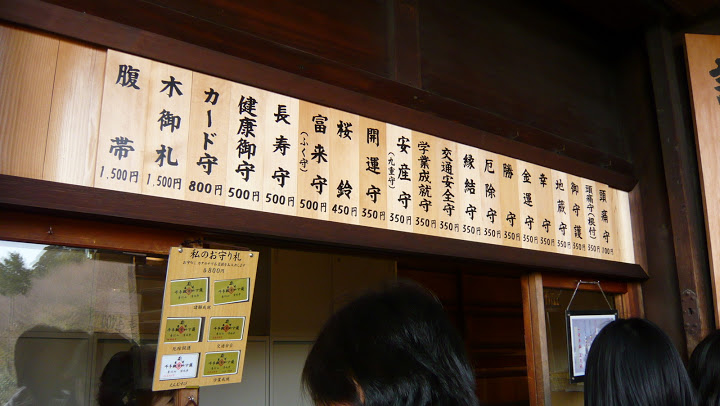 頭痛守
頭痛守(根付)
350円
御守護
350円
地蔵守
350円
幸守
350円
金運守
350円
勝守
350円
厄除守
350円
縁結守
350円
交通安全守
350円
学業成就守
350円
安産守
(九重守)
350円
開運守
350円
桜鈴
450円
富来守
(ふく守)
500円
長寿守
500円
健康御守
500円
カード守
800円
木御札
1,500円
腹帯
1,500円
私のお守り札
各800円